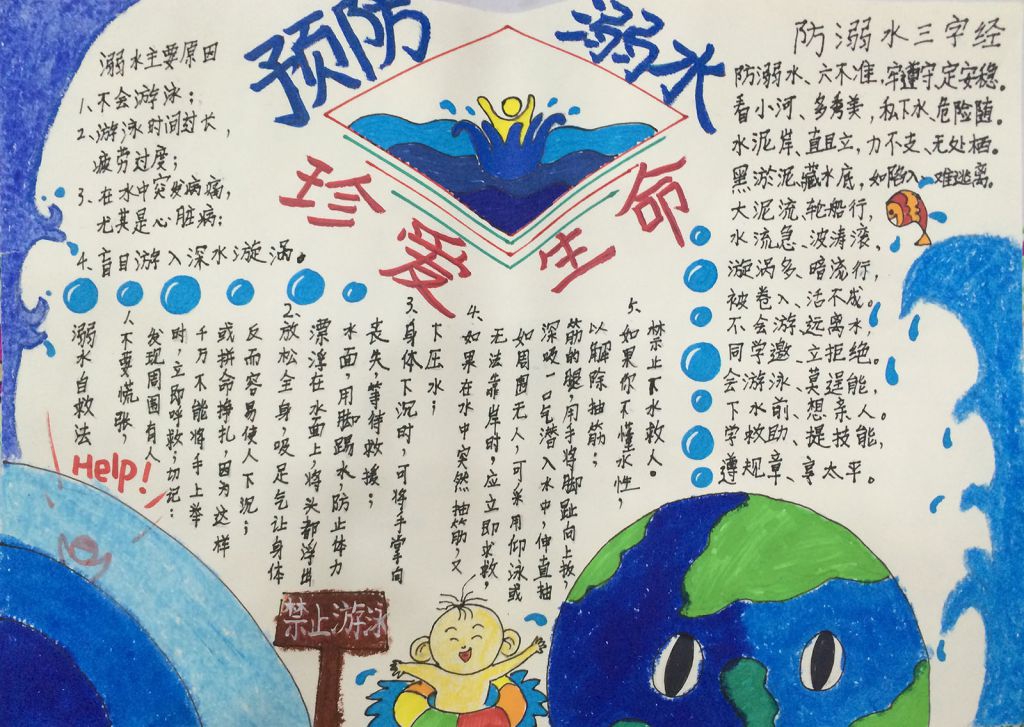 预防溺水
珍爱生命
溺水主要原因
1、不会游泳；
2、游泳时间过长，
疲劳过度；
3、在水中突发病痛，
尤其是心脏病；
4、盲目游入深水漩涡。
防溺水三字经
防溺水、六不准，牢遵守定安稳。
看小河、多秀美，私下水、危险随。
水泥岸、直且立，力不支、无处栖。
黑淤泥、藏水底，如陷入、难逃离。
大泥流、轮船行，
水流急、波涛滚，
漩涡多、暗流行，
被卷入、活不成。
不会游、远离水，
同学邀、立拒绝。
会游泳、莫逞能，
下水前、想亲人。
学救助、提技能，
遵规章、享太平。
溺水自救法
1、不要慌张，
发现周围有人
时，立即呼救，切记：
千万不能将手上举
或拼命挣扎，因为这样
反而容易使人下沉；
2、放松全身，吸足气让身体
漂浮在水面上，将头部浮出
水面，用脚踢水，防止体力
丧失，等待救援；
3、身体下沉时，可将手掌向
下压水；
4、如果在水中突然抽筋，又
无法靠岸时，应立即求救，
如周围无人，可采用仰泳或
深吸一口气潜入水中，伸直抽
筋的腿，用手将脚趾向上扳，
以解除抽筋；
5、如果你不懂水性，
禁止下水救人。
Help!
禁止游泳